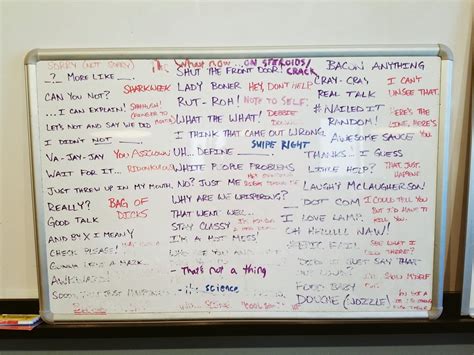 SORRY (NOT SORRY)
_?_ MORE LIKE ___.
CAN YOU NOT? SHARKWEEK
... I CAN EXPLAIN!
LET'S NOT AND SAY WE DID
I DIDN'T NOT ____.
VA-JAY-JAY YOU ASSCLOWN
WAIT FOR IT... RIDONKULOUS
JUST THREW UP IN MY MOUTH.
REALLY? BAG OF DICKS
GOOD TALK
AND BY X I MEAN Y
CHECK PLEASE!
AWKWARD!
WHAT NOW ...ON STEROIDS/CRACK
SHUT THE FRONT DOOR!
LADY BONER HEY, DON'T HELP!
RUT-ROH! NOTE TO SELF:
WHAT THE WHAT! DEBBIE DOWNER
I THINK THAT CAME OUT WRONG.
UH... DEFINE ____. SWIPE RIGHT
WHITE PEOPLE PROBLEMS
NO? JUST ME
WHY ARE WE WHISPERING?
THAT WENT WELL...
STAY CLASSY
I'M A HOT MESS!
- That's not a thing
- science
BACON ANYTHING
CRAY-CRAY I CAN'T UNSEE THAT.
REAL TALK
#NAILED IT
RANDOM! HERE'S THE
AWESOME SAUCE
THANKS... I GUESS
LITTLE HELP? THAT JUST HAPPENED.
LAUGHY MCLAUGHERSON
DOT COM I COULD TELL YOU BUT I'D HAVE TO KILL YOU.
I LOVE LAMP.
OH HELLLL NAW!
#EPIC FAIL SEE WHAT I DID THERE?
DID I JUST SAY THAT OUT LOUD?
I'LL SHOW MYSELF OUT.
FOOD BABY
DOUCHE (NOZZLE)